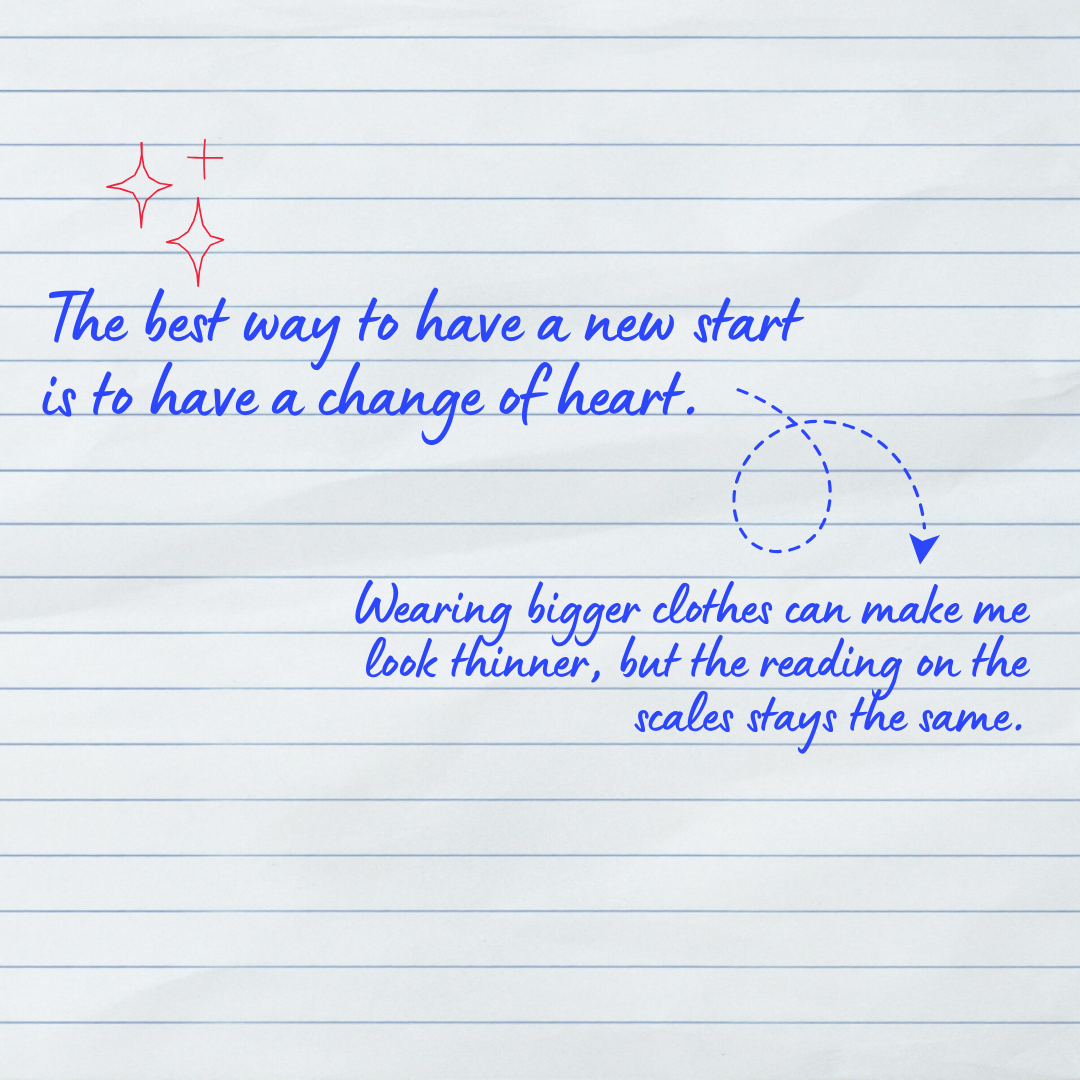 The best way to have a new start
is to have a change of heart.
Wearing bigger clothes can make me
look thinner, but the reading on the
scales stays the same.